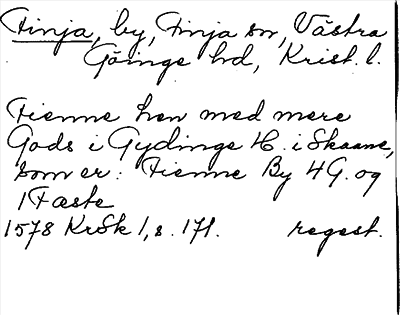 Finja, by, Finja sn, Västra
Göinge hd, Krist. l.
Fienne hen med mere
Gods i Gydinge H. i Skaane,
som er: Fienne By 4 G. og
1 Fæste
1578 KrSk 1, s. 171. regest.